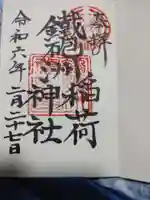 奉拝
鐵砲洲稲荷
神社
令和六年二月二十七日